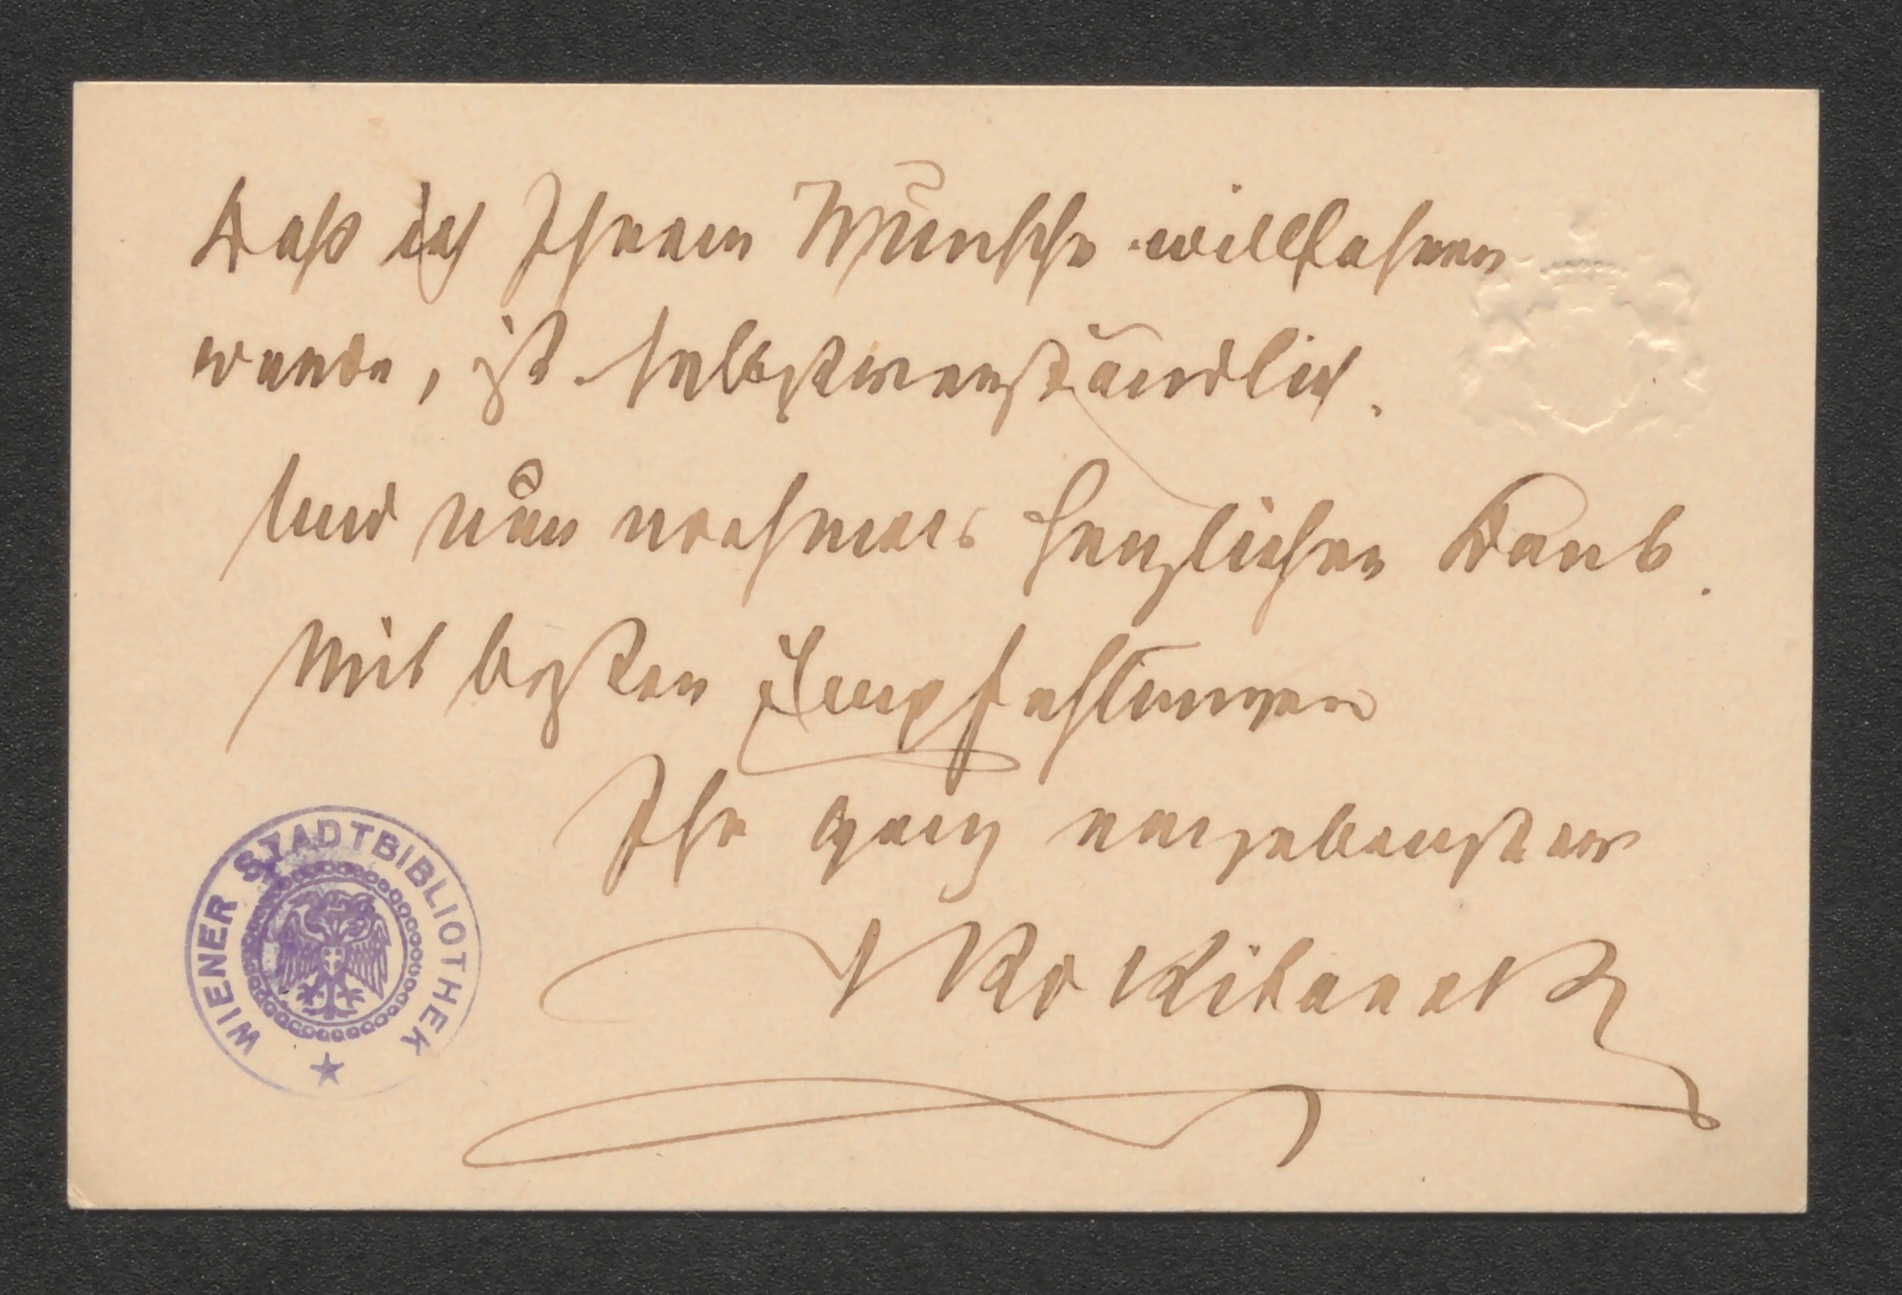 Daß ich Ihrem Wunsche willfahren
werde, ist selbstverständlich.
Und nun nochmals herzlichen Dank.
Mit besten Empfehlungen
Ihr ganz ergebenster
Rokitansky
WIENER STADTBIBLIOTHEK